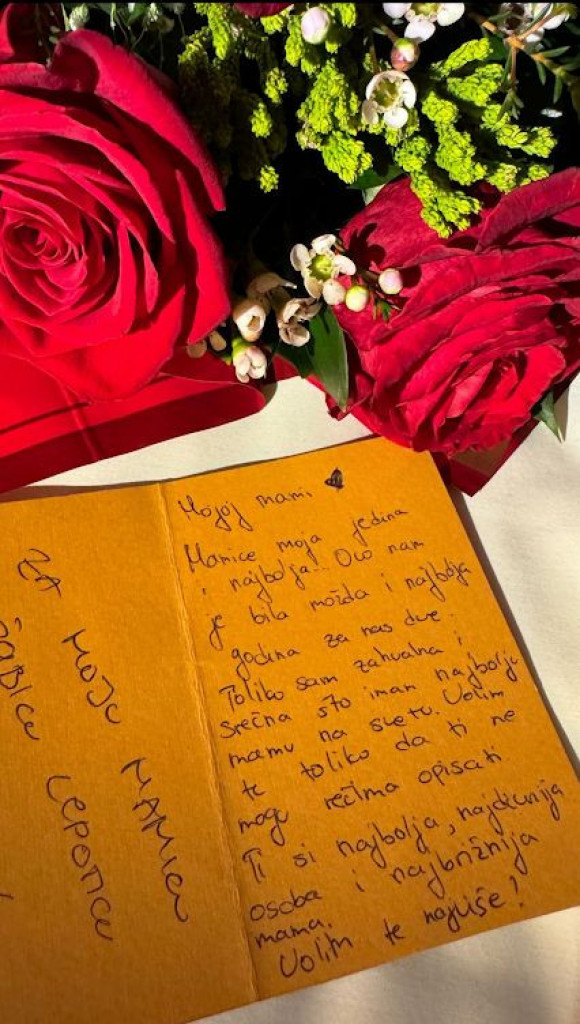 ZA MOJU
MAMICU
LEPOTICU
Mojoj mami
Mamice moja jedina
i najbolja.. Ovo nam
je bila možda i najbolja
godina za nas dve.
Toliko sam zahvalna i
srećna što imam najbolju
mamu na svetu. Volim
te toliko da ti ne
mogu rečima opisati
Ti si najbolja, najdivnija
osoba i najbrižnija
mama.
Volim te najviše!